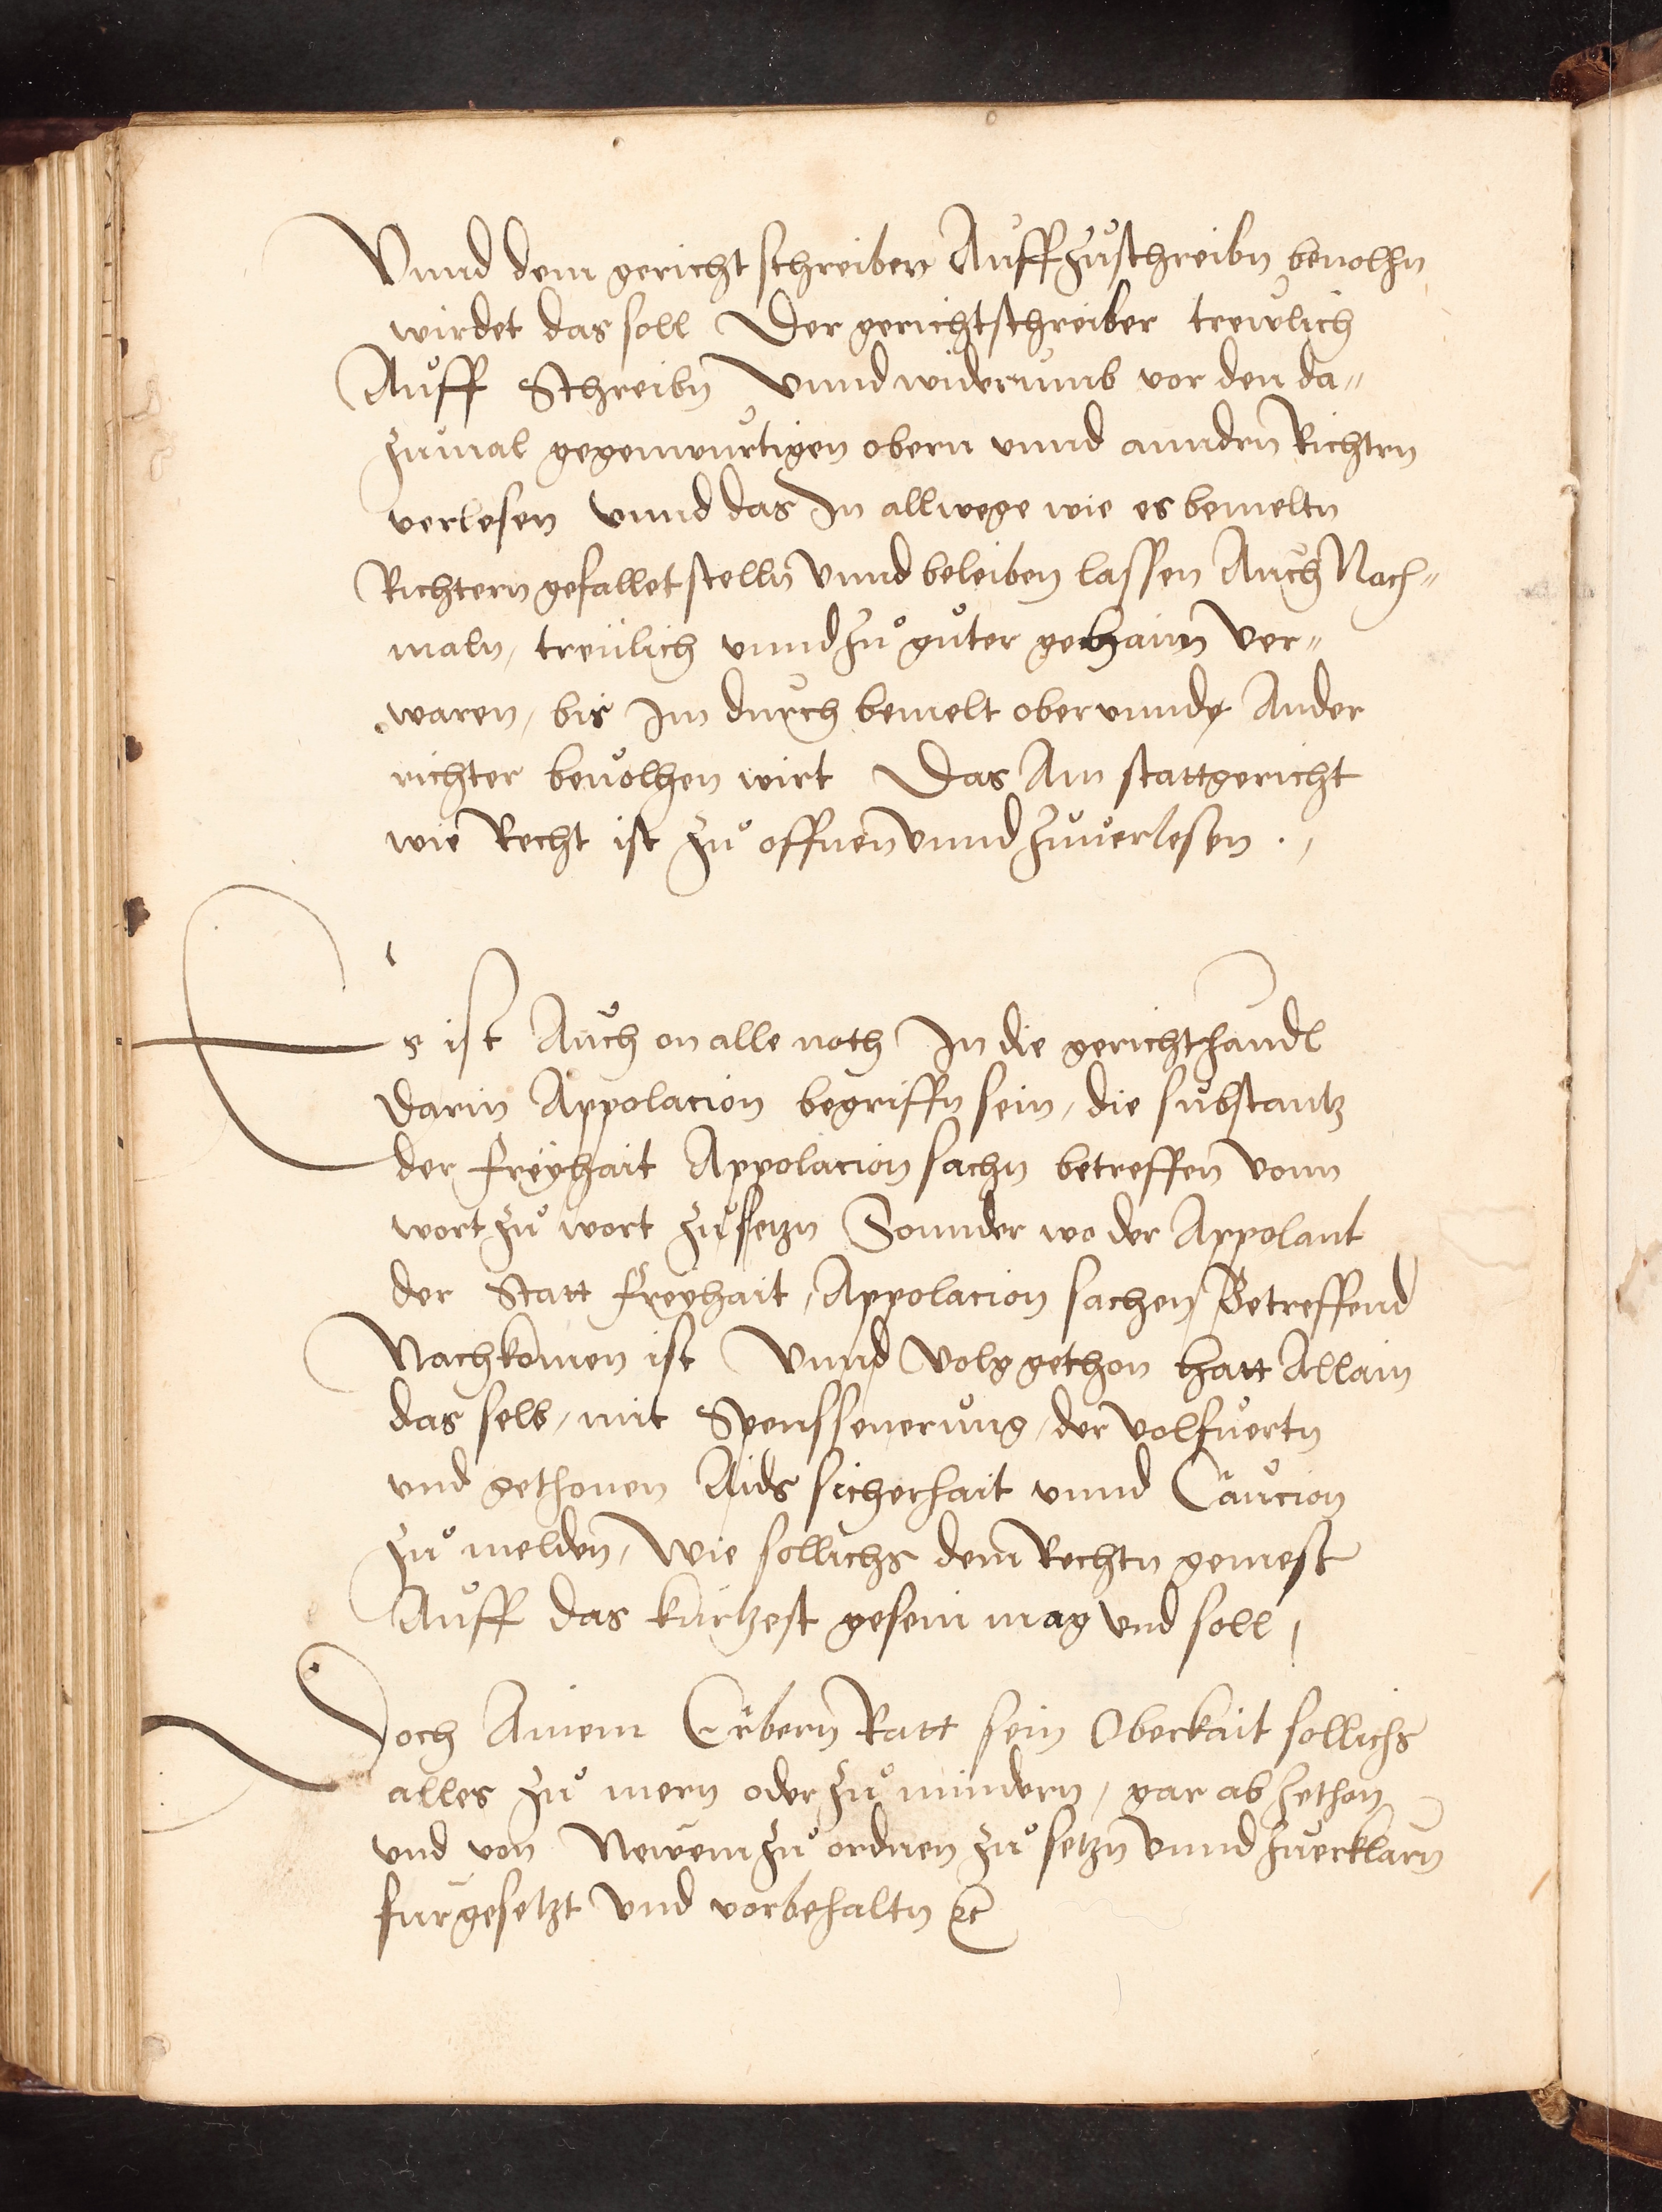 Vnnd dem gericht schreiber Auff zuschreibn beuolhn
wirdet das soll Der gerichtschreiber trewlich
Auff Schreibn Vnnd widerumb vor den da=
zumal gegenwurtigen obern vnnd anndrn Richtern
verlesen vnnd das In allwege wie es bemeltn
Richtern gefallet stelln Vnnd beleiben lassen Auch Nach=
maln, treulich vnnd zu guter gehaim Ver=
waren, bis Im durch bemelt ober vnnd Ander
richter beuolhen wirt Das Am stattgericht
wie Recht ist zu offnen Vnnd zuuerlesen .,
Es ist Auch on alle noth In die gerichthandl
Darin Appolacion begriffn sein, die substantz
der freyhait Appolacion sachn betreffen vonn
wort zu wort zusetzn Sonnder wo der Appolant
der Statt freyhait, Appolacion sachen, Betreffend
Nachkomen ist Vnnd Volg gethon hatt Allain
das selb, mit der volfuertn
vnd gethonen Aids sicherhait vnnd Caucion
zu melden, Wie sollichs dem Rechtn gemest
Auff das kurtzest gesein mag vnd soll,
Doch Ainem Erbern Ratt sein Oberkait sollichs
alles zu mern oder zu mindern, gar ab zethon
vnd von Newem zu ordnen zu setzn Vnnd zuerklarn
furgesetzt Vnd vorbehaltn &c